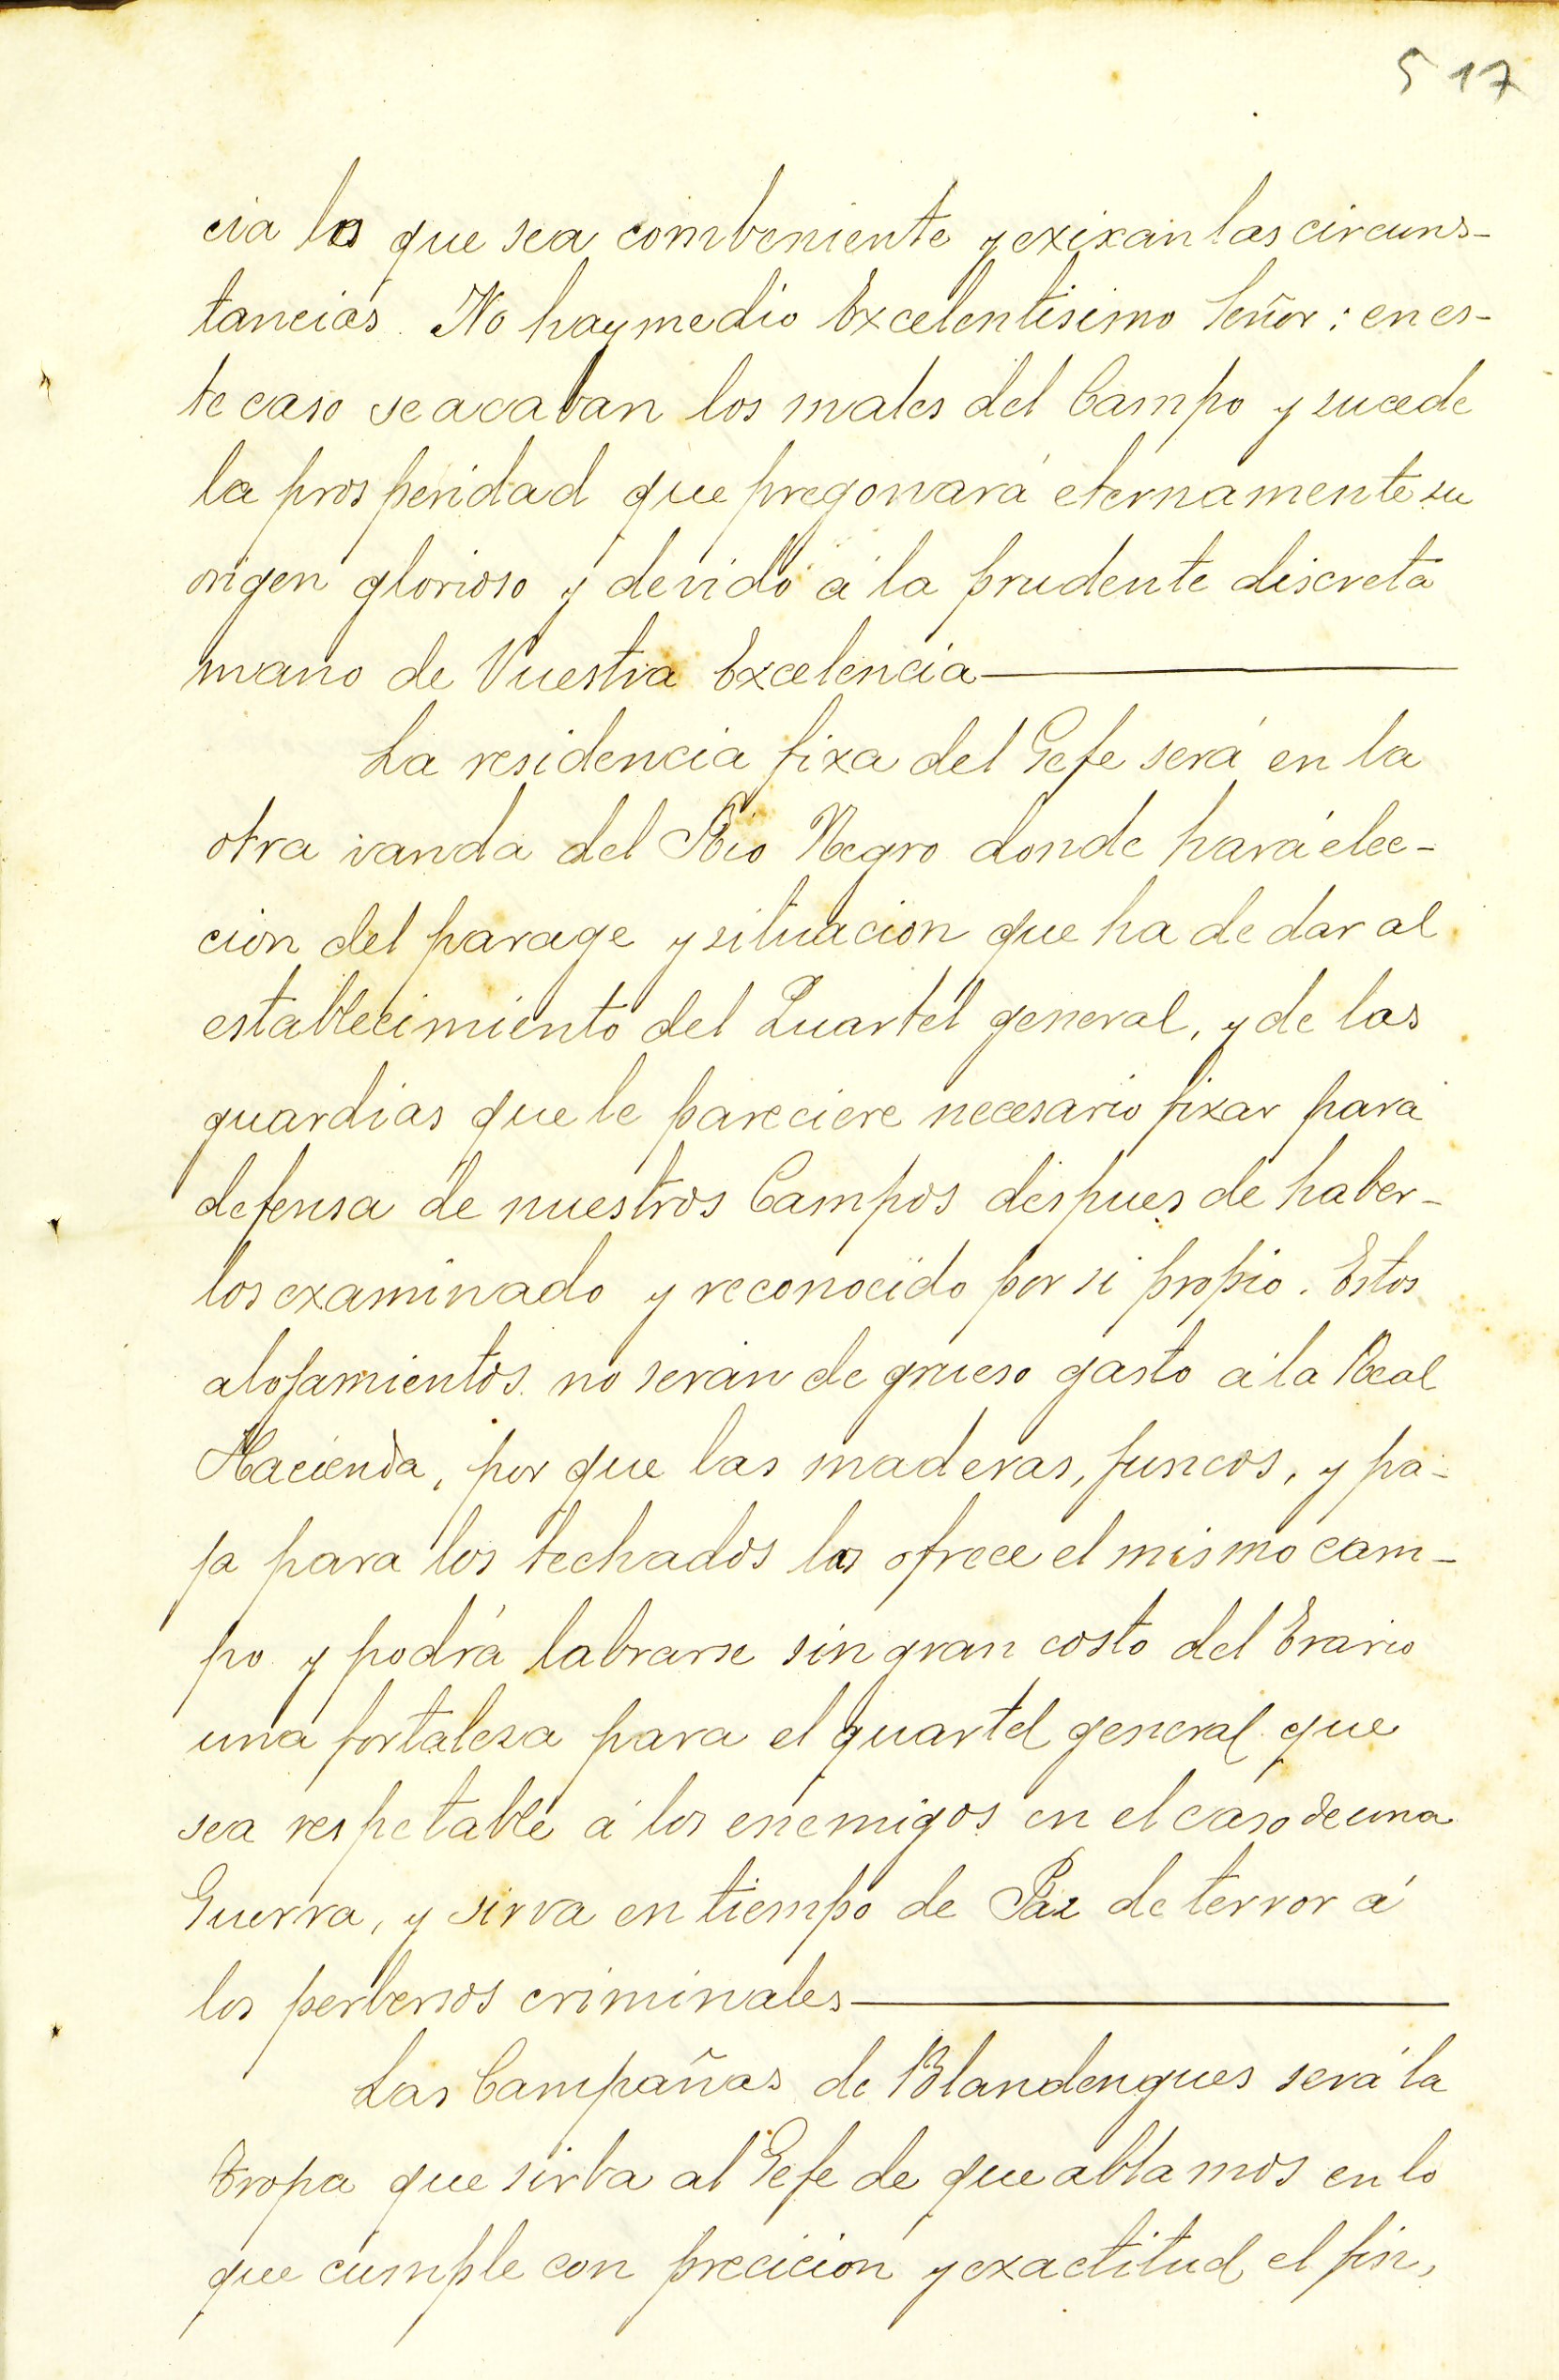 517
cia los que sea combeniente y exixan las circuns-
tancias. No hay medio Excelentisimo Señor: en es-
te caso se acavan los males del Campo y sucede
la prosperidad que pregonará eternamente su
origen glorioso y devido á la prudente discreta
mano de Vuestra Excelencia
La residencia fixa del Gefe será en la
otra vanda del Rio Negro donde hará elec-
cion del parage y situacion que ha de dar al
establecimiento del Quartel general, y de las
guardias que le pareciere necesario fixar para
defensa de nuestros Campos despues de haber-
los examinado y reconocido por si propio. Estos
alojamientos no serán de grueso gasto á la Real
Hacienda, por que las maderas, juncos, y pa-
ja para los techados los ofrece el mismo cam-
po y podrá labrarse sin gran costo del Erario
una fortalesa para el quartel general que
sea respetable á los enemigos en el caso de una
Guerra, y sirva en tiempo de Paz de terror á
los perbersos criminales
Las Campañas de Blandengues será la
tropa que sirba al Gefe de que ablamos en lo
que cumple con precicion y exactitud el fin,